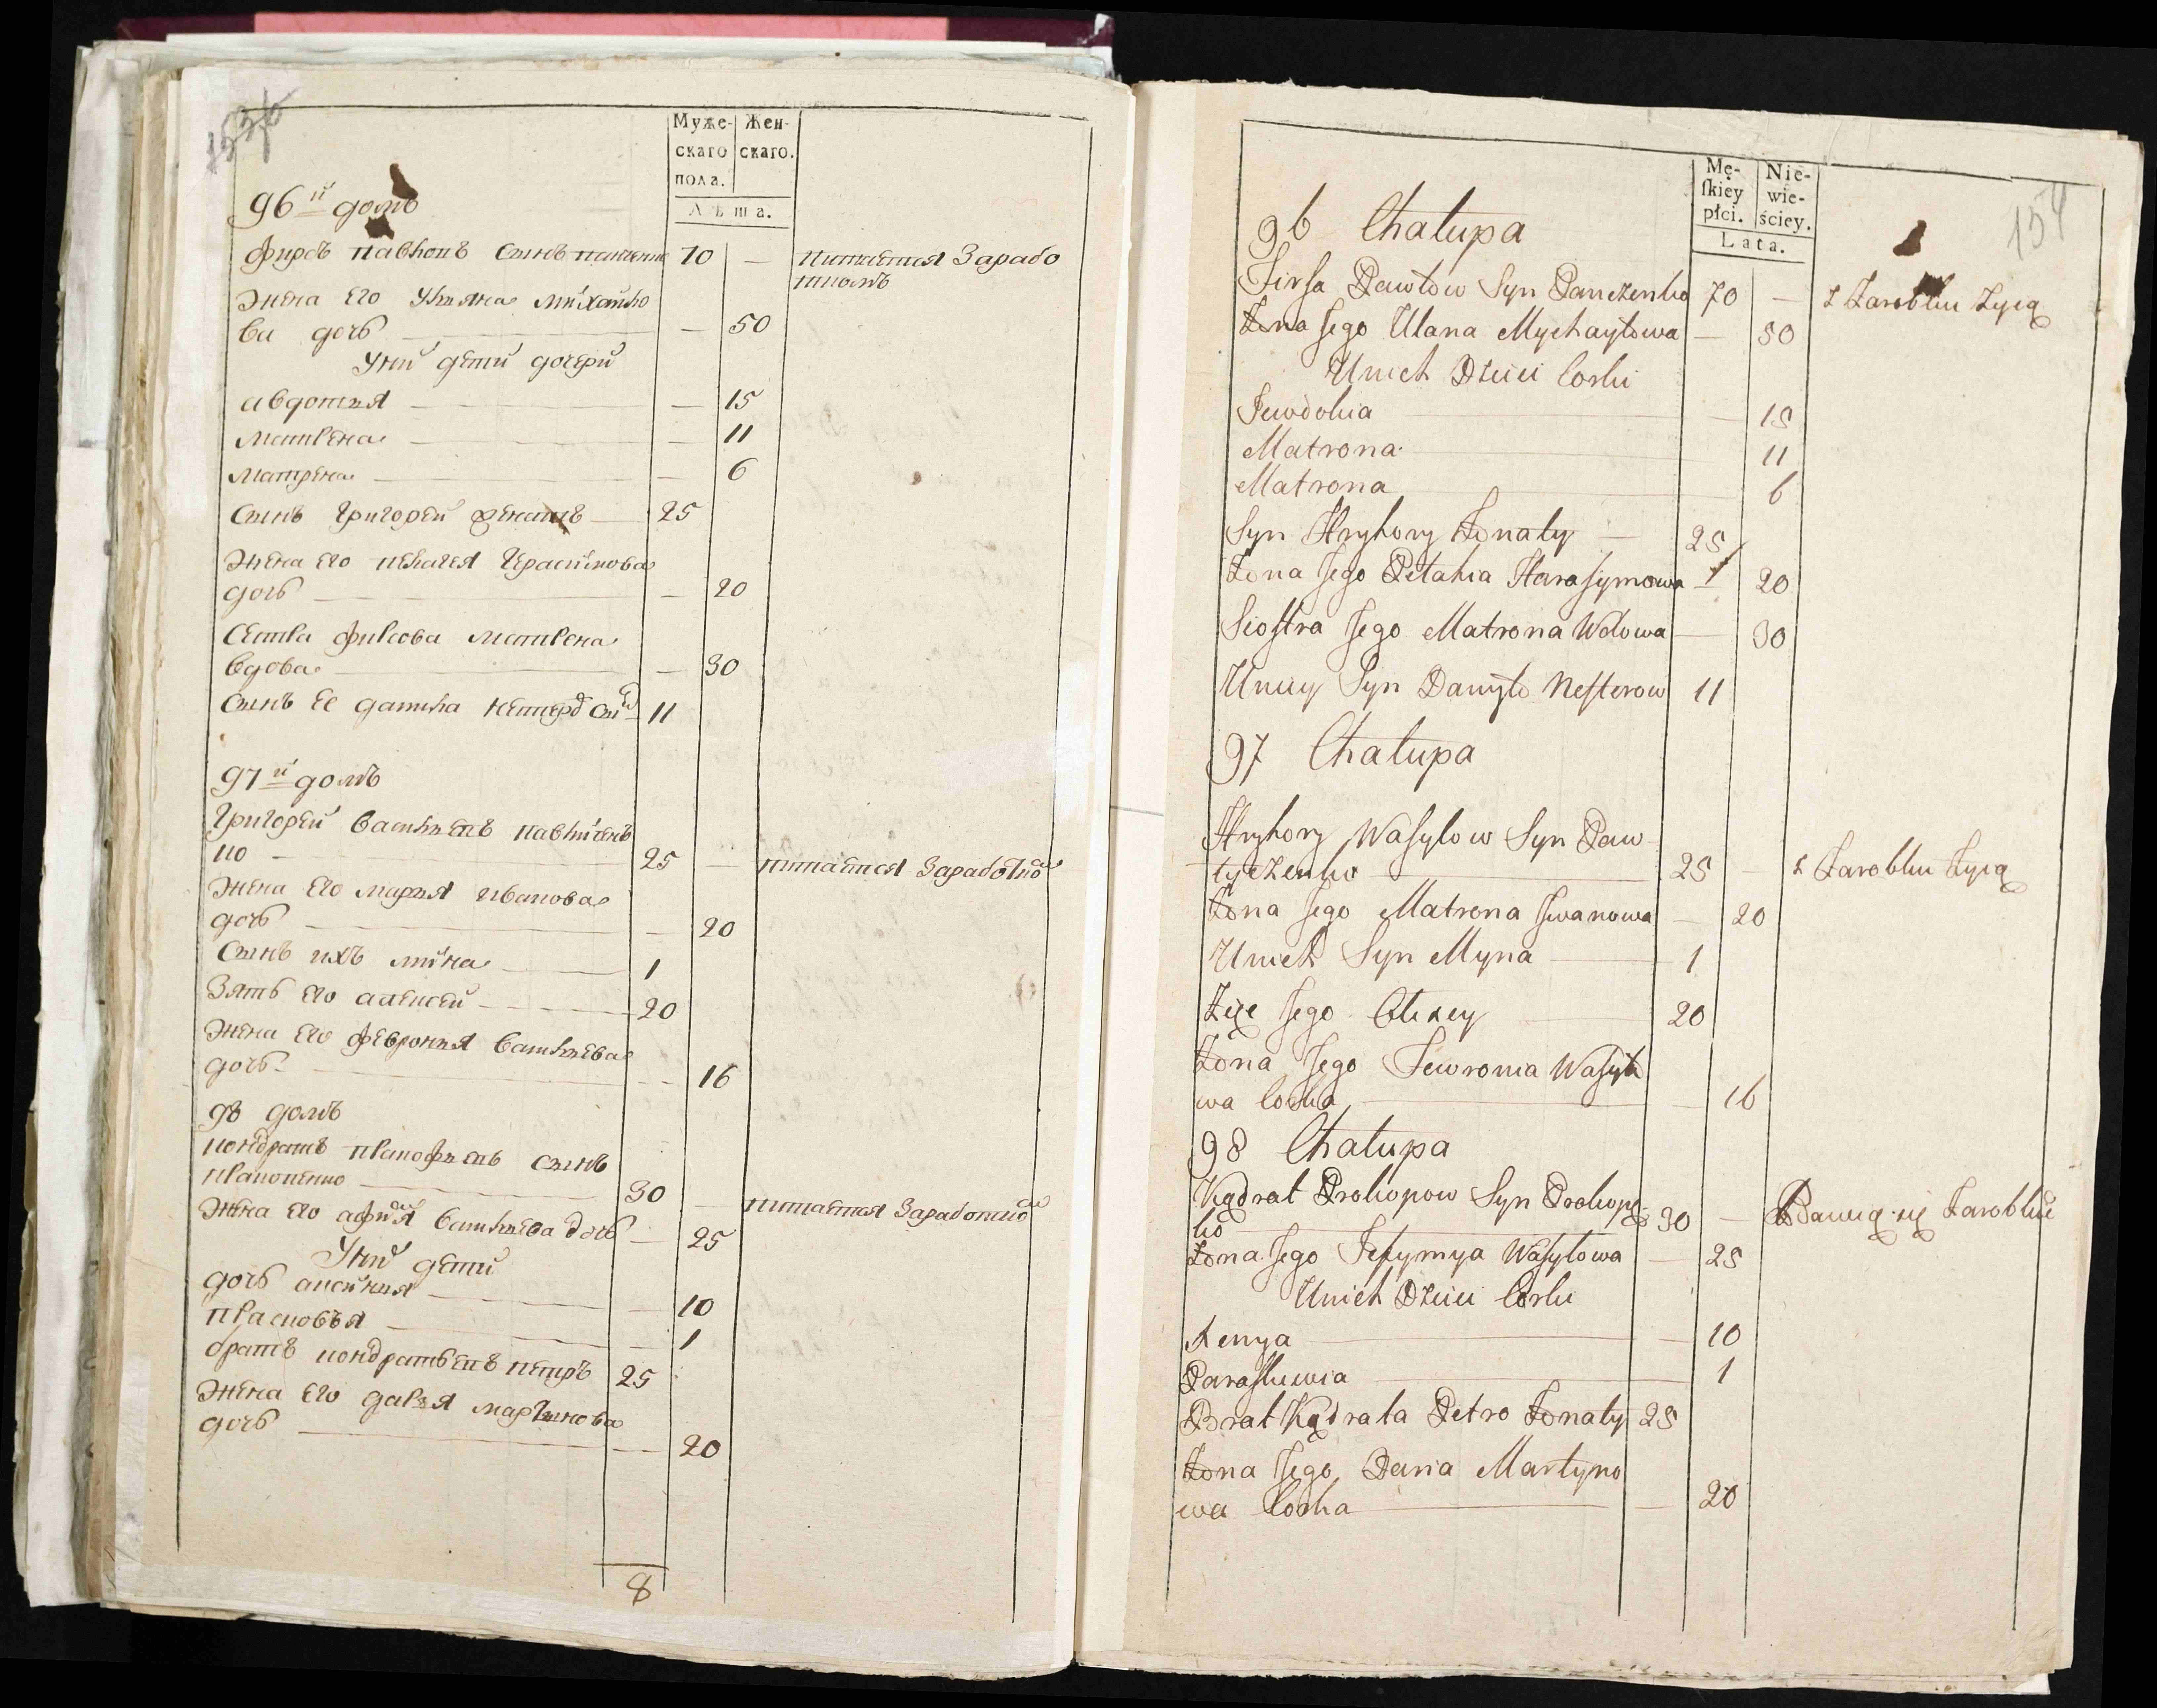 153б
Муже- Жен-
скаго скаго.
пола.
Лѣта.
96й домъ
Фирсъ Павловъ сынъ Панченко 70 — питается Зарабо
ткомъ
Жена его Ульяна Михайло
ва дочь — 50
У них дети дочери
Авдотья — — 15
Матрена — — 11
Матрена — — 6
Сынъ Григорей женатъ — 25
Жена его Пелагея Герасимова
дочь — — 20
Сестра Фирсова Матрена
вдова — — 30
Сынъ ее Данила Нестеровъ сы 11
97й домъ
Григорей Васильевъ Павличен
ко — 25 — питается Заработко
Жена его Марья Иванова
дочь — — 20
Сынъ ихъ Мина — 1
Зять его Алексей — 20
Жена его Февронья Васильева
дочь — — 16
98 домъ
Кондратъ Прокофьевъ сынъ
Прокопенко — 30 — питается Заработко
Жена его Афимья Васильева дочь — 25
У них дети
дочь Аксинья — — 10
Прасковья — — 1
братъ Кондратьевъ Петръ 25
Жена его Дарья Мартынова
дочь — — 20
8
154
Mę- Nie-
ſkiey wie-
płci. ściey.
Lata.
96 Chałupa
Firsa Pawłow Syn Panczenko 70 — z Zarobku Żyią
Żona Jego Ulana Mychayłowa — 50
U nich Dzieci Corki
Jewdokia — 15
Matrona 11
Matrona 6
Syn Hryhory Żonaty — 25
Żona Jego Pelahia Harasymowa — 20
Siostra Jego Matrona Wdowa — 30
U niey Syn Daniło Nesterow 11
97 Chałupa
Hryhory Wasylow Syn Paw
lyczenko — 25 — z Zarobku Żyią
Żona Jego Matrona Jwanowa — 20
U nich Syn Myna — 1
Zięć Jego Olexey 20
Żona Jego Fewronia Wasyło
wa Corka — — 16
98 Chałupa
Kądrat Prokopow Syn Prokope
ko — 30 — Bawią się Zarobkie
Żona Jego Jefymya Wasyłowa — 25
U nich Dzieci Corki
Xenya — — 10
Paraskiewia — 1
Brat Kądrata Petro Żonaty 25
Żona Jego Daria Martyno
wa Corka — — 20